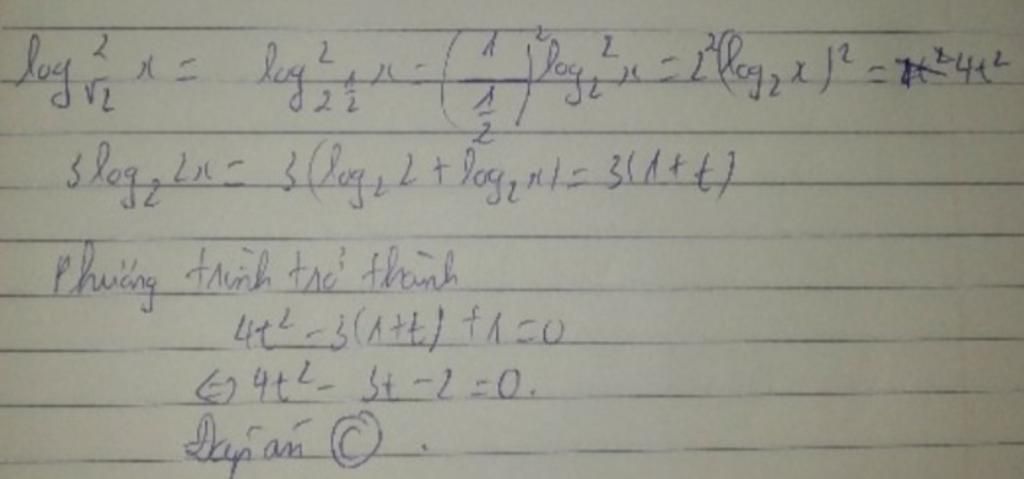 log²_√2 x = log²_{2^{1/2}} x = (1/(1/2))² log₂² x = 2²(log₂ x)² = 4t²
3log₂ 2x = 3(log₂ 2 + log₂ x) = 3(1+t)
Phương trình trở thành
4t² - 3(1+t) + 1 = 0
⇔ 4t² - 3t - 2 = 0.
Đáp án C .